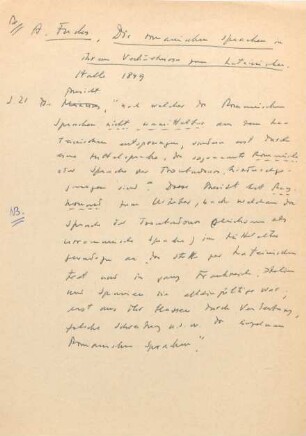 A. Fuchs, Die romanischen Sprachen in
ihrem Verhältnisse zum Lateinischen.
Halle 1849
Ansicht
S. 21 "nach welcher die Romanischen
Sprachen nicht unmittelbar aus dem La-
teinischen entsprungen, sondern erst durch
eine Mittelsprache, die sogenannte Romanische
oder Sprache der Troubadours, hindurchge-
gangen sind". Diese Ansicht hat Ray-
NB. nouard zum Urheber, nach welchem die
Sprache der Troubadours gleichsam als
Sprache, im Mittelalter
geradezu an die Stelle der Lateinischen
trat und in ganz Frankreich, Italien
und Spanien die alleingültige war,
erst aus ihr durch Verderbung,
falsche Schreibung u.s.w. die
Romanischen Sprachen."